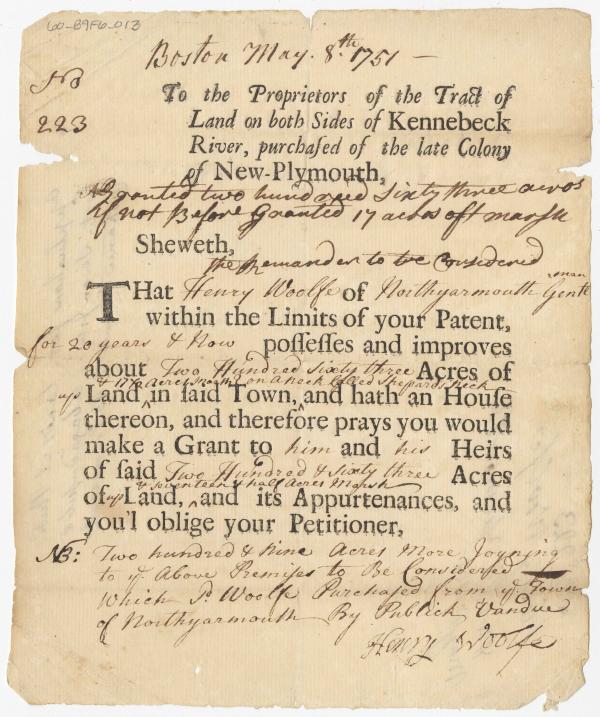 60-B9F6-013
Boston May. 8.th 1751 —
No
223
To the Proprietors of the Tract of
Land on both Sides of Kennebeck
River, purchaſed of the late Colony
of New-Plymouth,
Granted two hundreed Sixty three acros
if not Before Granted 17 acros oft marsh
Sheweth,
the Remander to be Considered
THat Henry Woolfe of Northyarmouth Gentleman
within the Limits of your Patent,
for 20 years & Now poſſeſſes and improves
about Two Hundred Sixty three Acres of
& 17½ Acres Marsh on a neck Called Shepards neck
up Land in ſaid Town, and hath an Houſe
thereon, and therefore prays you would
make a Grant to him and his Heirs
of ſaid Two Hundred & Sixty three Acres
& Seventeen & half Acres Marsh
of up Land, and its Appurtenances, and
you'l oblige your Petitioner,
NB: Two hundred & Nine Acres More Joyning
to ye Above Premises to Be Considered
Which Sd Woolfe Purchased from ye Town
of Northyarmouth By Publick Vandue
Henry Woolfe